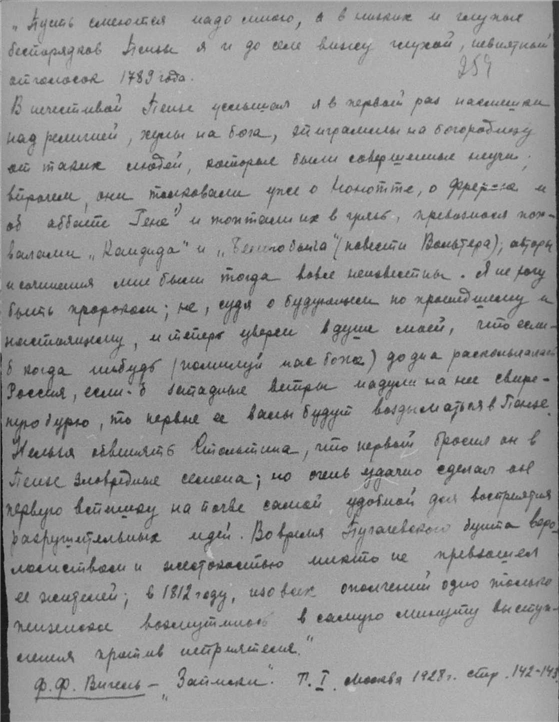 „Пусть смеются надо мною, а в низких и глупых
беспорядков Пензы я и до селе вижу глухой, невнятный
отголосок 1789 года.
254
В нечестивой Пензе услышал я в первый раз насмешки
над религией, хулы на бога, эпиграммы на богородицу
от таких людей, которые были совершенные неучи;
впрочем, они толковали уже о Нонотте, о Фрероне и
об аббате Гене и топтали их в грязь, превознося пох-
валами „Кандида" и „Белого быка" (повести Вольтера); авторы
и сочинения мне были тогда вовсе неизвестны. Я не могу
быть пророком; но, судя о будущем по прошедшему и
настоящему, и теперь уверен в душе моей, что если-
б когда нибудь (помилуй нас боже) до дна расколыхалась
Россия, если-б западные ветры надули на нее свире-
пую бурю, то первые ее валы будут воздыматься в Пензе.
Нельзя обвинять Столыпина, что первый бросил он в
Пензе зловредные семена; но очень удачно сделал он
первую вспашку на почве самой удобной для восприятия
разрушительных идей. Во время Пугачевского бунта веро-
ломством и жестокостью никто не превзошел
ее жителей; в 1812 году, изо всех ополчений одно только
пензенское возмутилось в самую минуту высту-
пления против неприятеля."
Ф. Ф. Вигель – „Записки". Т. I. Москва 1928 г. стр. 142-143